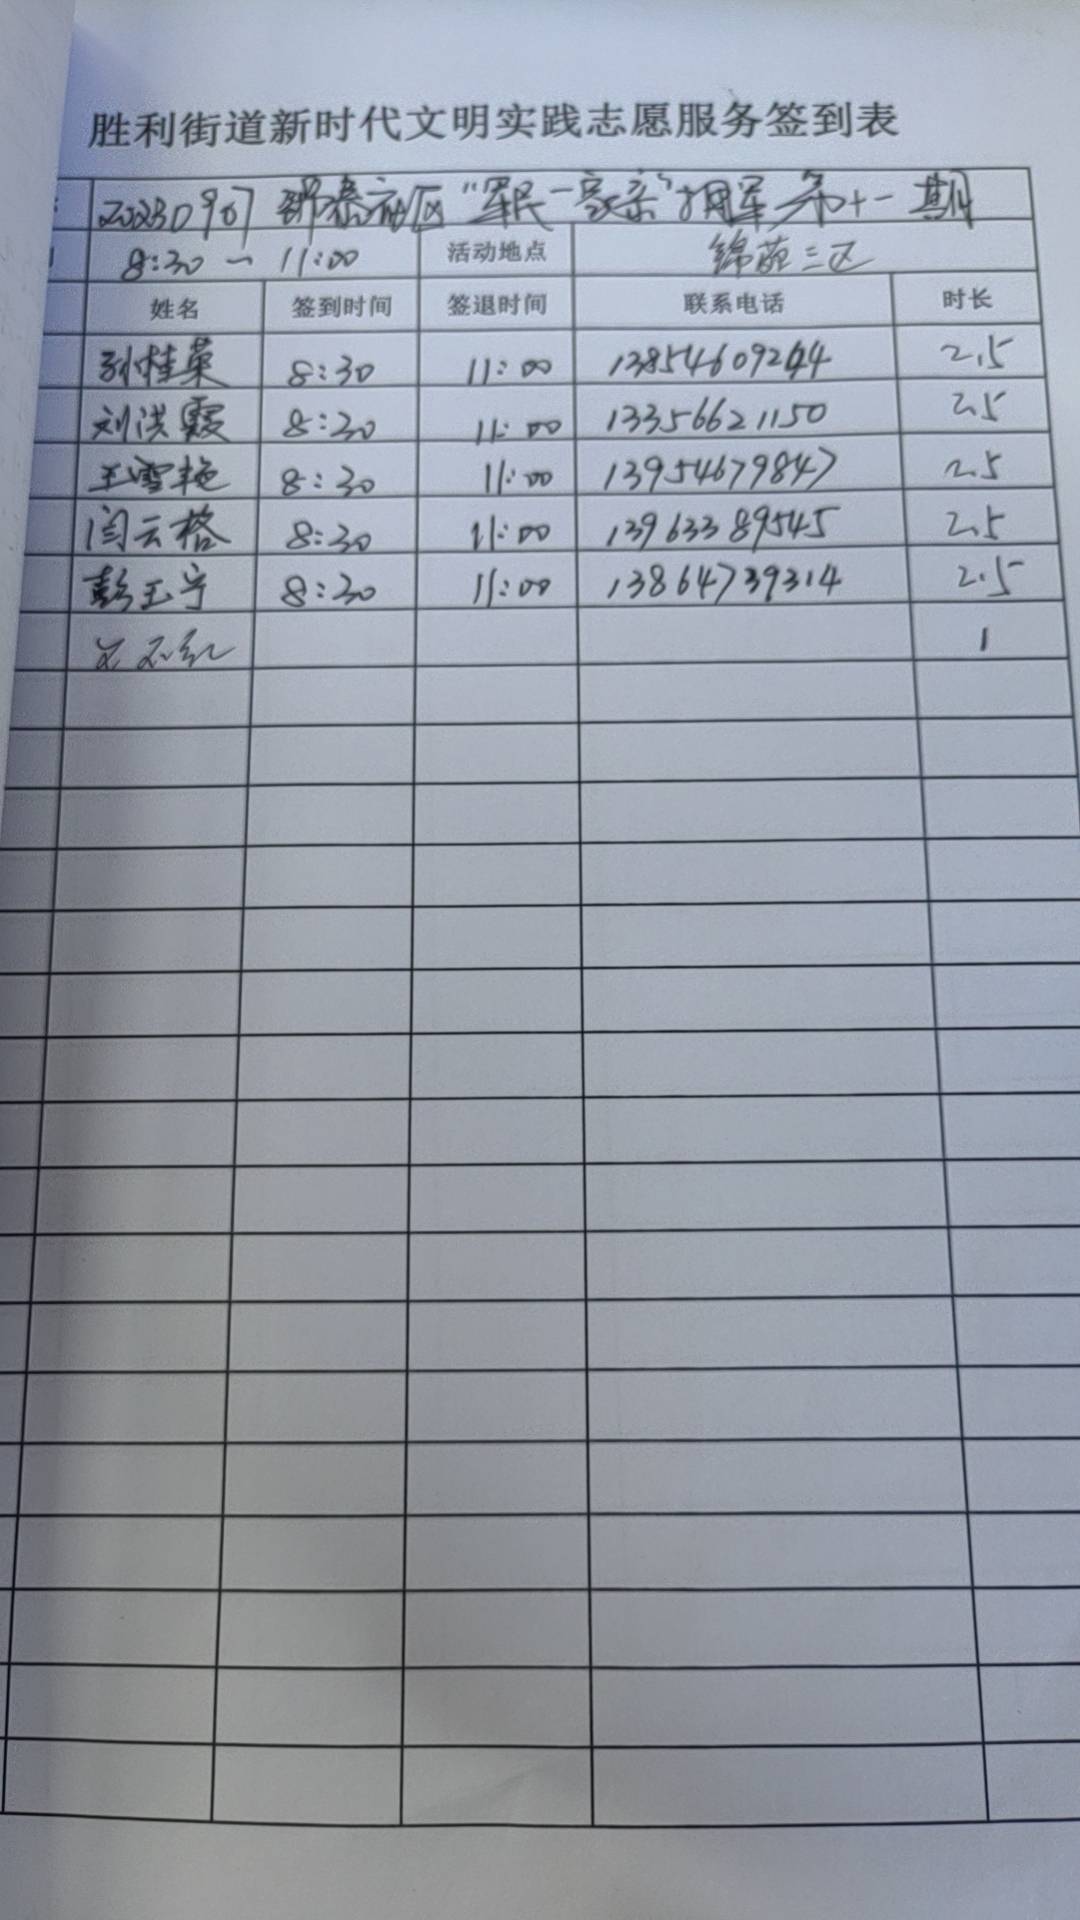 胜利街道新时代文明实践志愿服务签到表
20230907 锦泰社区“军民一家亲”拥军第十一期
8:30 — 11:00 活动地点 锦苑三区
姓名 签到时间 签退时间 联系电话 时长
孙桂英 8:30 11:00 13854609244 2.5
刘洪霞 8:30 11:00 13356621150 2.5
王雪艳 8:30 11:00 13954679847 2.5
闫云格 8:30 11:00 13963389545 2.5
彭玉宁 8:30 11:00 13864739314 2.5
1